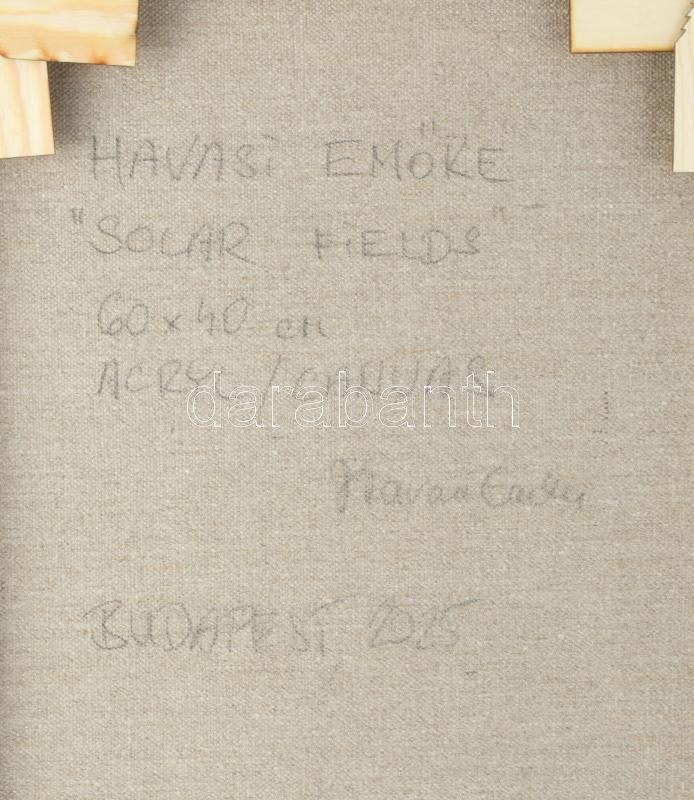 HAVASI EMŐKE
"SOLAR FIELDS"
60 x 40 cm
ACRYL / CANVAS
darabanth
Havasi Emőke
BUDAPEST 2025